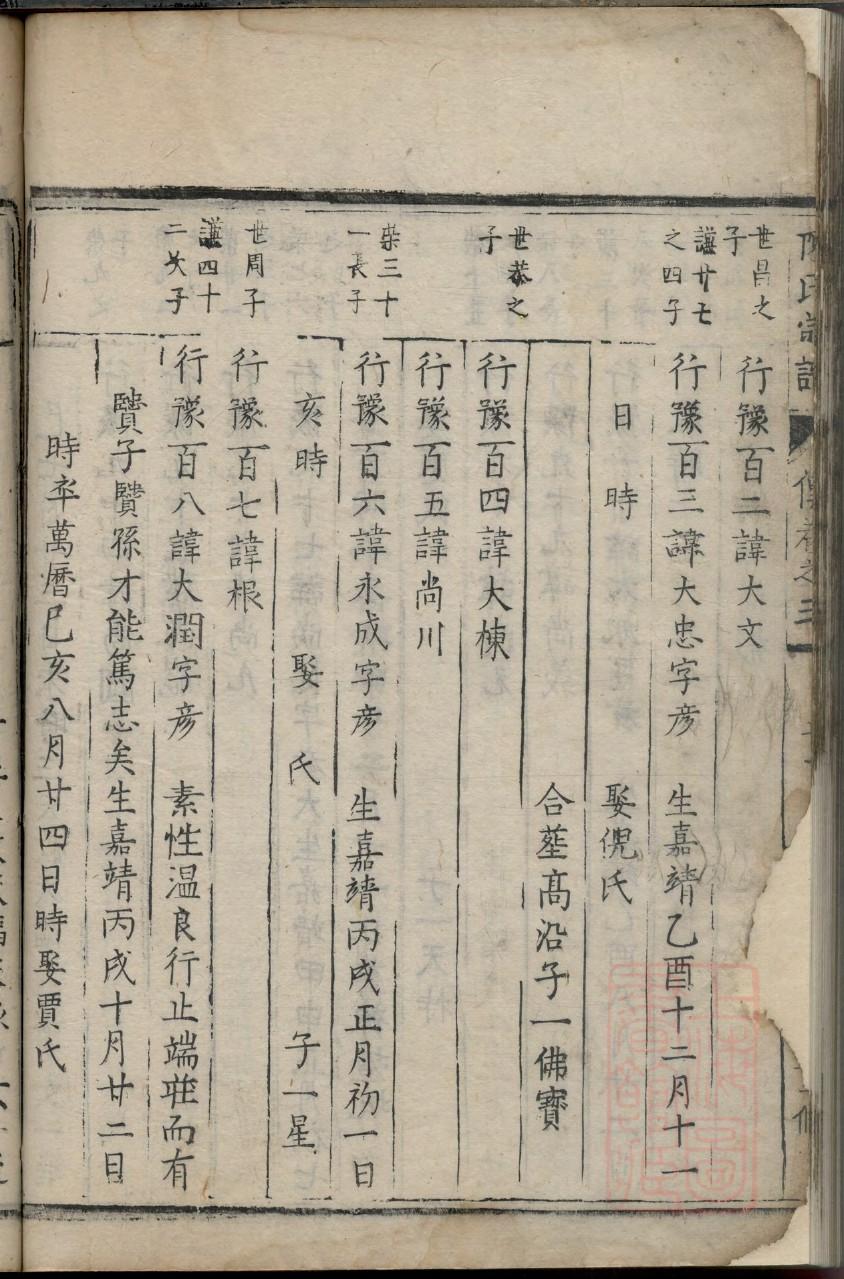 陳氏宗譜
傳卷之三
世昌之
子
行豫一百二諱大文
謹廿七
之四子
行豫一百三諱大忠字彥 生嘉靖乙酉十二月十一
日 時 娶倪氏
合塟髙沿子一佛寶
世恭之
子
行豫一百四諱大棟
行豫一百五諱尚川
榮三十
一長子
行豫一百六諱永成字彥 生嘉靖丙戌正月初一日
亥時 娶 氏 子一星
世周子
行豫一百七諱根
謹四十
二次子
行豫一百八諱大潤字彥 素性温良行止端莊而有
賢子賢孫才能篤志矣生嘉靖丙戌十月廿二日
時卒萬曆己亥八月廿四日時娶賈氏